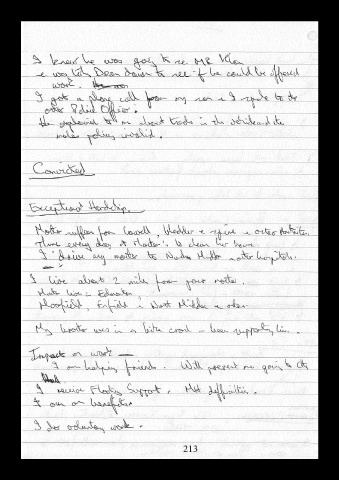 I knew he was going to see MR Khan
& was with Dean down to see if he could be offered
work.
I got a phone call from my son & I spoke to the
other Police Officer.
He explained to me about tools in the vehicle and the
makes policy invalid.
Convicted
Exceptional Hardship
Mother suffers from bowell, bladder & spine & other
Three every days at mother's to clean her house
I drive my mother to North Middx & other hospitals.
I live about 2 mile from your mother.
Mother lives = Edmonton
Moorfield, Enfield & North Middx & other
My brother was in a bike crash - been supporting him.
Impact on work
I am helping friends. Will prevent me going to
I receive Floating Support. Met difficulties.
I am on benefits.
I do voluntary work.
213